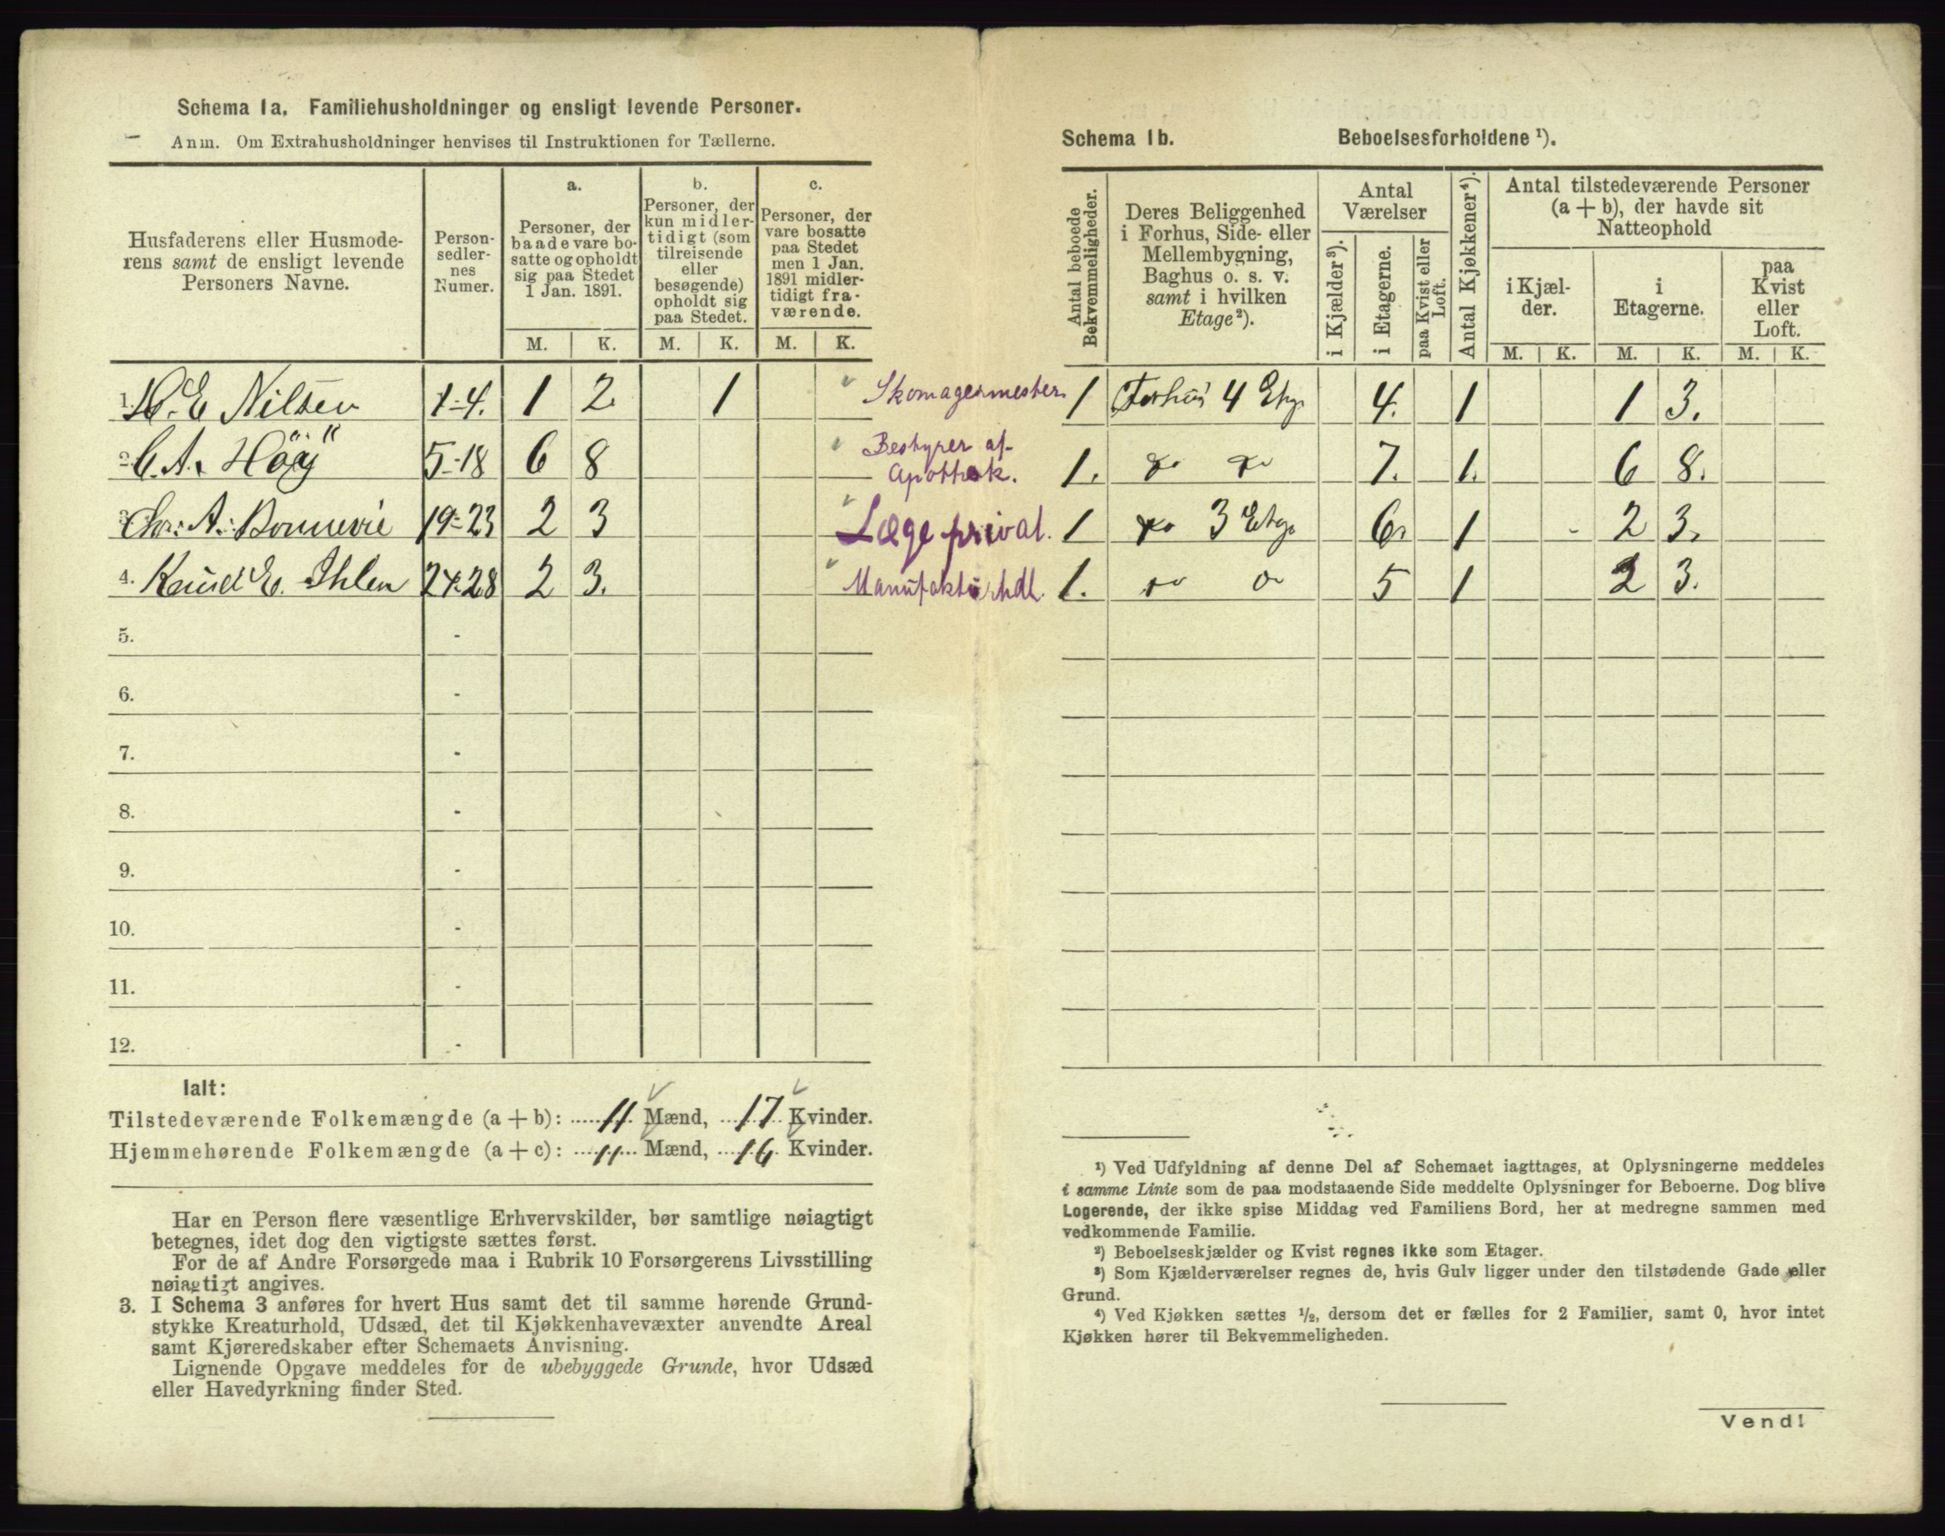 Schema 1a. Familiehusholdninger og ensligt levende Personer.
Anm. Om Extrahusholdninger henvises til Instruktionen for Tællerne.
Husfaderens eller Husmode-
rens samt de ensligt levende
Personers Navne.
Person-
sedler-
nes
Numer.
a.
Personer, der
baade vare bo-
satte og opholdt
sig paa Stedet
1 Jan. 1891.
b.
Personer, der
kun midler-
tidigt (som
tilreisende
eller
besøgende)
opholdt sig
paa Stedet.
c.
Personer, der
vare bosatte
paa Stedet
men 1 Jan.
1891 midler-
tidigt fra-
værende.
M. K. M. K. M. K.
1. H. E Nilsen 1-4. 1 2 1 Skomagermester
2. C. A. Höÿ 5-18 6 8 Bestyrer af
Apothek.
3. Chr. A. Bonnevie 19-23 2 3 Læge privat.
4. Knud E. Ihlen 24-28 2 3. Manufakturhdl.
5. -
6. -
7. -
8. -
9. -
10. -
11. -
12. -
Ialt:
Tilstedeværende Folkemængde (a + b): 11 Mænd, 17 Kvinder.
Hjemmehørende Folkemængde (a + c): 11 Mænd, 16 Kvinder.
Har en Person flere væsentlige Erhvervskilder, bør samtlige nøiagtigt
betegnes, idet dog den vigtigste sættes først.
For de af Andre Forsørgede maa i Rubrik 10 Forsørgerens Livsstilling
nøiagtigt angives.
3. I Schema 3 anføres for hvert Hus samt det til samme hørende Grund-
stykke Kreaturhold, Udsæd, det til Kjøkkenhavevæxter anvendte Areal
samt Kjøreredskaber efter Schemaets Anvisning.
Lignende Opgave meddeles for de ubebyggede Grunde, hvor Udsæd
eller Havedyrkning finder Sted.
Schema 1b. Beboelsesforholdene ¹).
Antal beboede
Bekvemmeligheder.
Deres Beliggenhed
i Forhus, Side- eller
Mellembygning,
Baghus o. s. v.
samt i hvilken
Etage²).
Antal
Værelser
i Kjælder³).
i Etagerne.
paa Kvist eller
Loft.
Antal Kjøkkener⁴).
Antal tilstedeværende Personer
(a + b), der havde sit
Natteophold
i Kjæl-
der.
i
Etagerne.
paa
Kvist
eller
Loft.
M. K. M. K. M. K.
1 Forhus 4 Etg. 4. 1 1 3.
1. do do 7. 1. 6 8.
1 do 3 Etg. 6. 1 - 2 3.
1. do do 5 1 2 3.
¹) Ved Udfyldning af denne Del af Schemaet iagttages, at Oplysningerne meddeles
i samme Linie som de paa modstaaende Side meddelte Oplysninger for Beboerne. Dog blive
Logerende, der ikke spise Middag ved Familiens Bord, her at medregne sammen med
vedkommende Familie.
²) Beboelseskjælder og Kvist regnes ikke som Etager.
³) Som Kjælderværelser regnes de, hvis Gulv ligger under den tilstødende Gade eller
Grund.
⁴) Ved Kjøkken sættes ½, dersom det er fælles for 2 Familier, samt 0, hvor intet
Kjøkken hører til Bekvemmeligheden.
Vend!